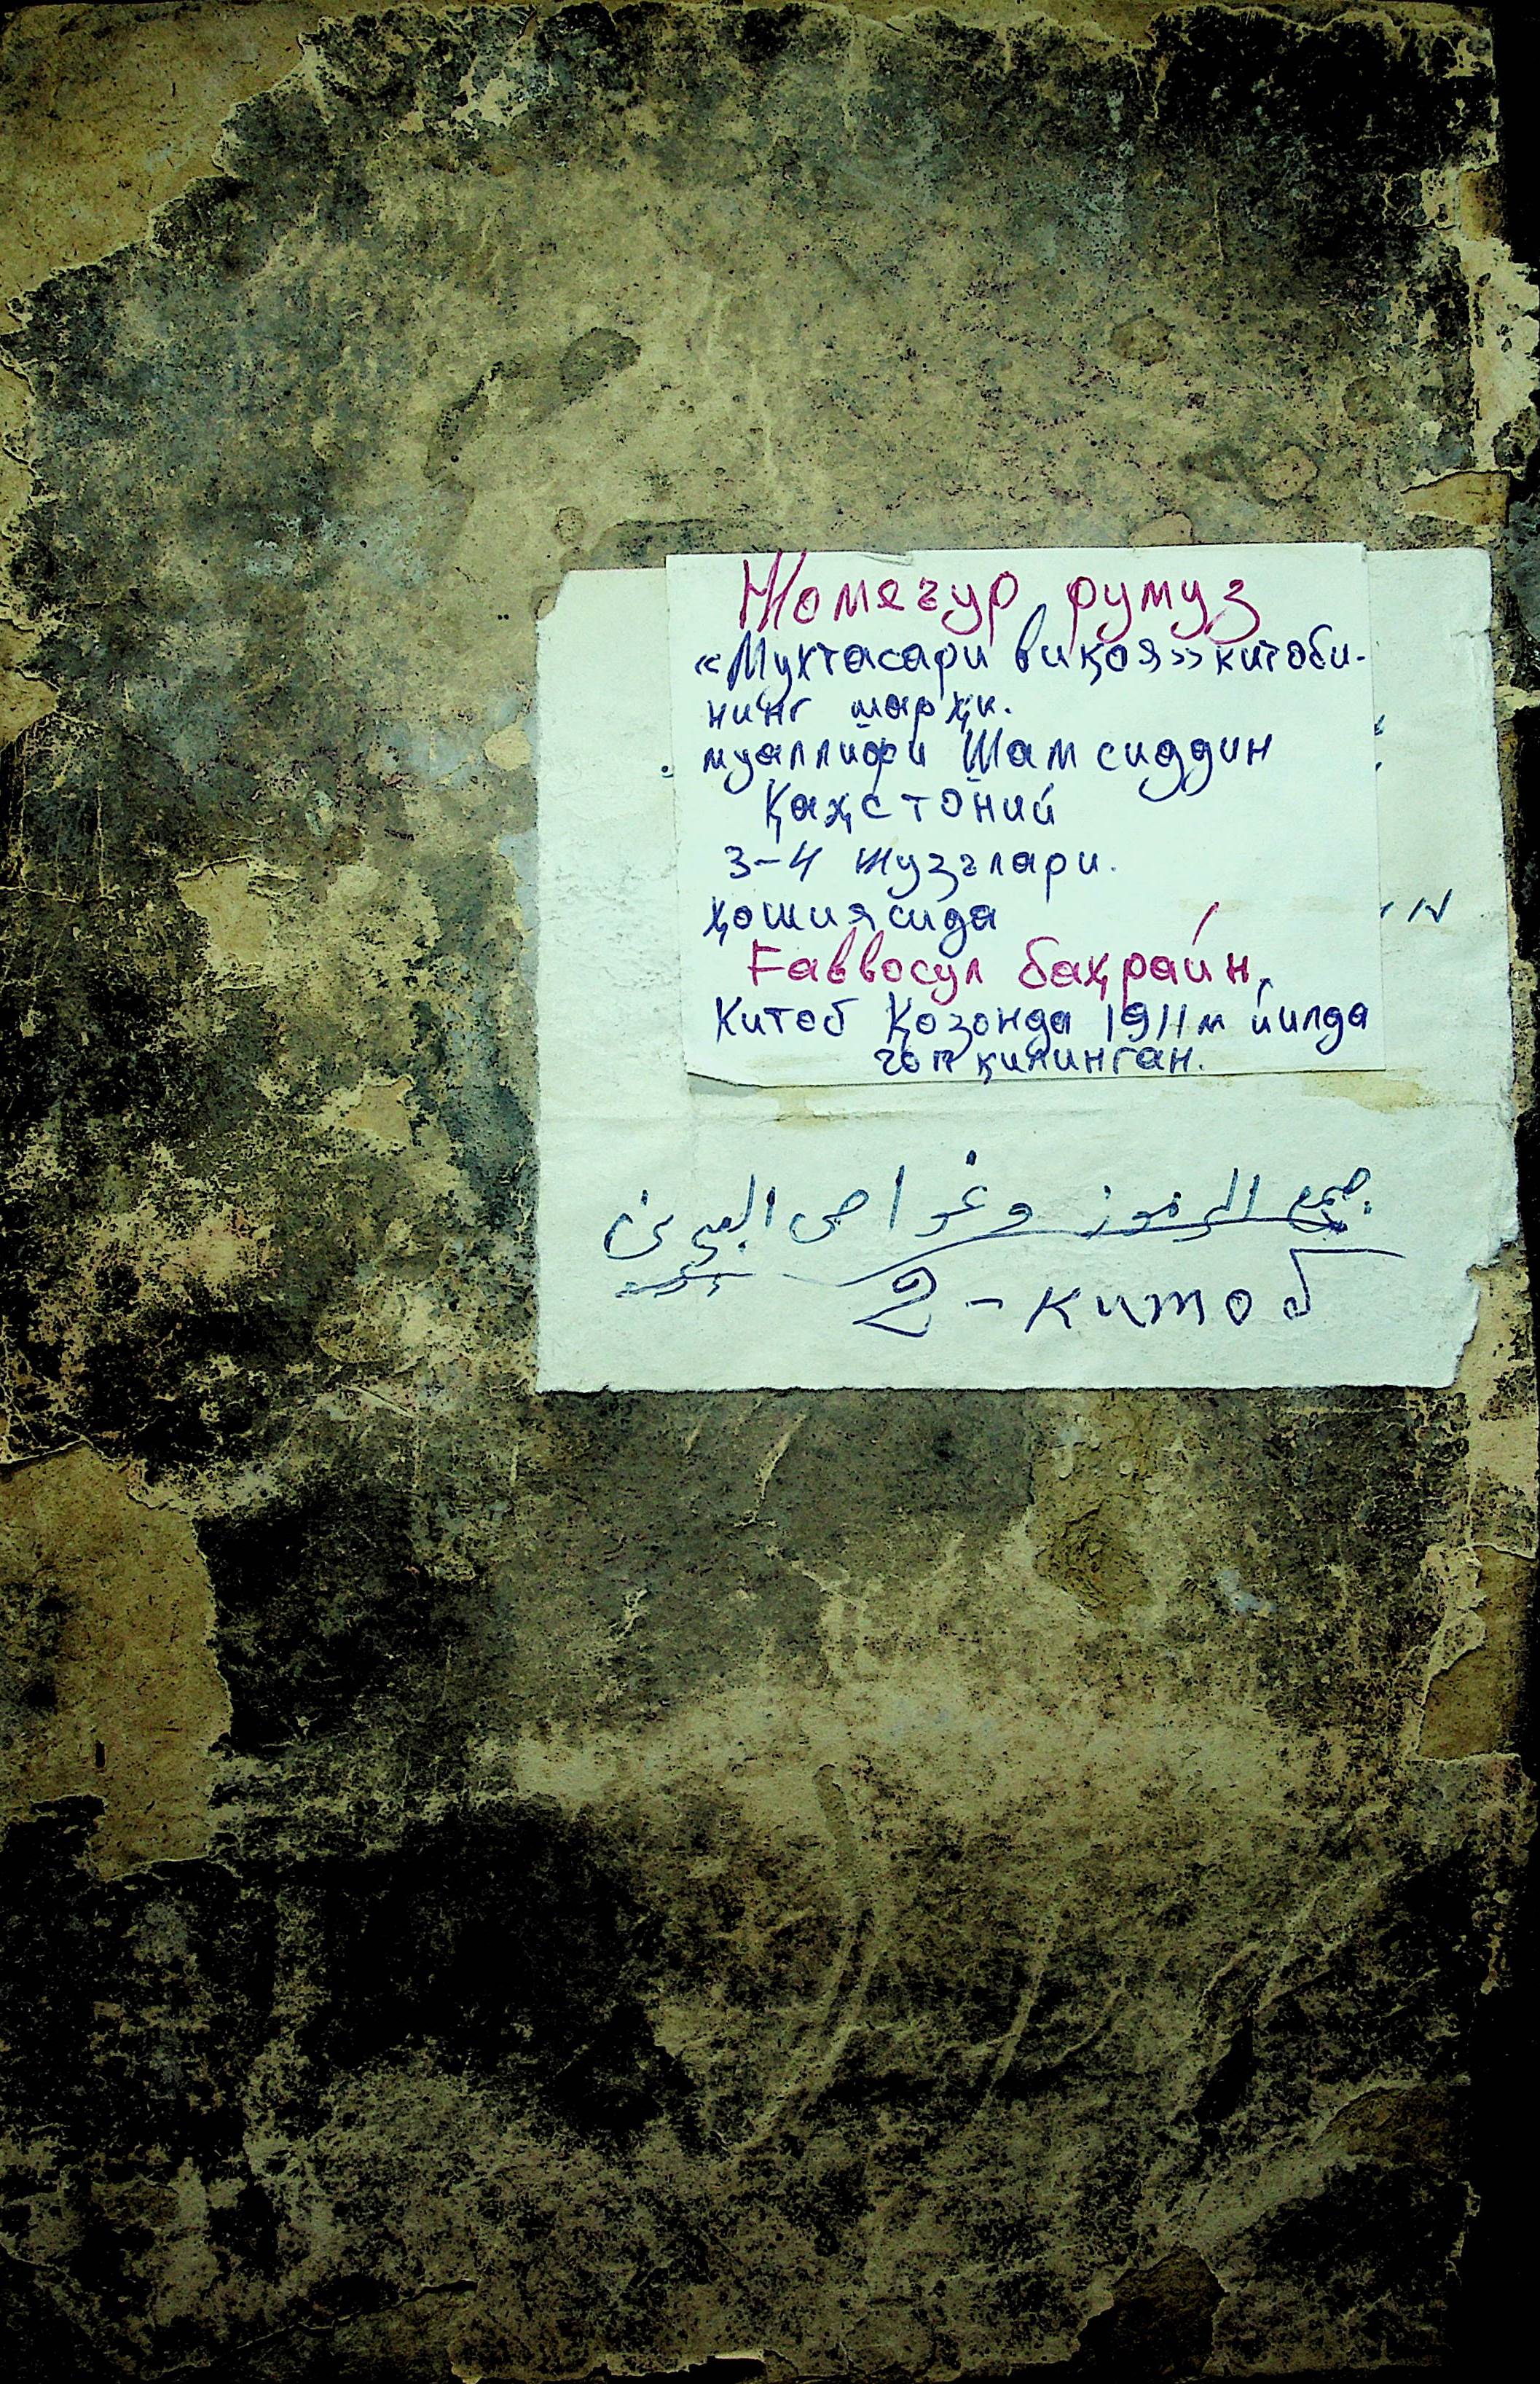 Жомеъур румуз
«Мухтасари виқоя» китоби-
нинг шарҳи.
муаллифи Шамсиддин
Қаҳстоний
3-4 жузълари.
ҳошиясида
Ғаввосул баҳрайн.
Китоб Қозонда 1911м йилда
чоп қилинган.
جمع الرموز وغواص البحرين
2-китоб